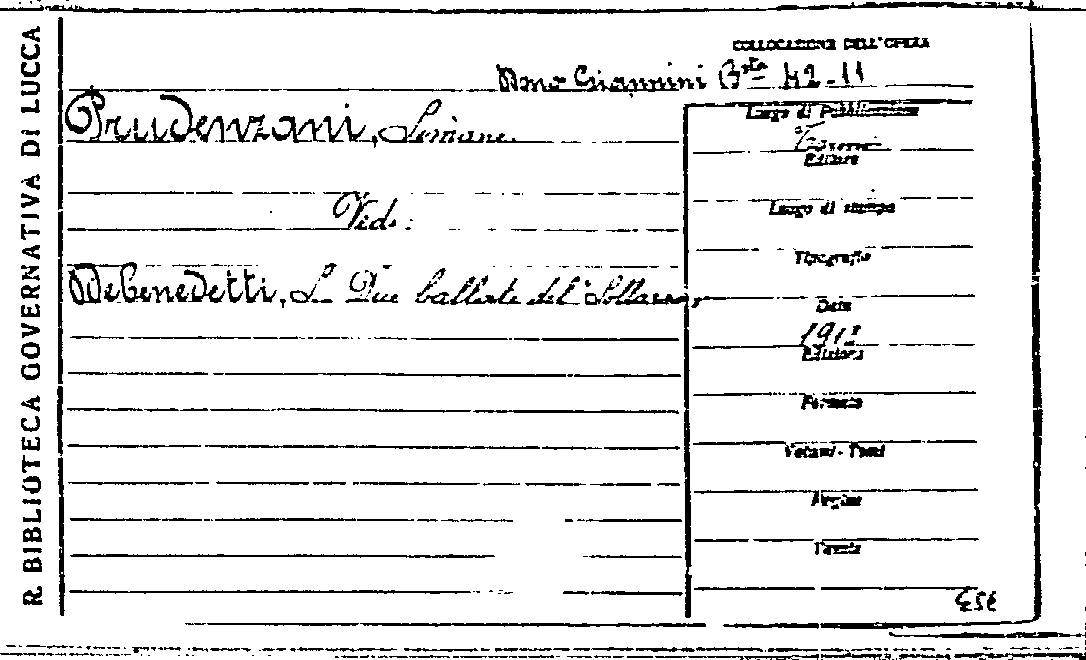 R. BIBLIOTECA GOVERNATIVA DI LUCCA
COLLOCAZIONE DELL'OPERA
Dono Giannini Bsta 42-11
Prudenzani,
Vedi:
Debenedetti, Due ballate del Sollazzo,
Luogo di Pubblicazione
Editore
Luogo di stampa
Tipografia
Data
1912
Edizione
Formato
Volumi-Tomi
Pagine
Tavole